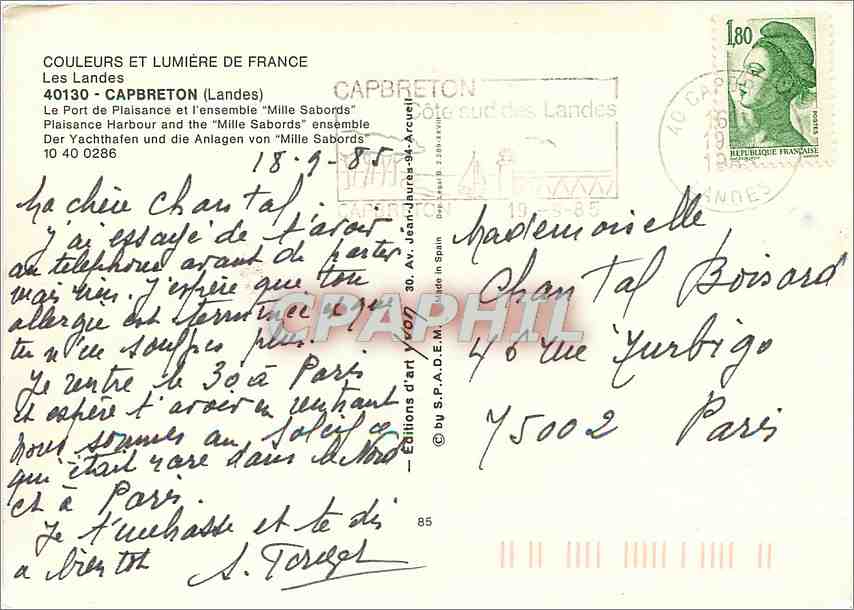 COULEURS ET LUMIÈRE DE FRANCE
Les Landes
40130 - CAPBRETON (Landes)
Le Port de Plaisance et l'ensemble "Mille Sabords"
Plaisance Harbour and the "Mille Sabords" ensemble
Der Yachthafen und die Anlagen von "Mille Sabords"
10 40 0286
18-9-85
Ma chère Chantal.
J'ai essayé de t'avoir
au telephone avant de partir
mais rien. J'espère que ton
allergie est terminée et que
tu n'en souffres plus.
Je rentre le 30 à Paris
et espère t'avoir en rentrant
nous sommes au soleil ce
qui était rare dans le Nord
et à Paris.
Je t'embrasse et te dis
a bientot
— Editions d'art yvon 30, Av. Jean-Jaurès-94-Arcueil
© by S.P.A.D.E.M. Made in Spain
85
CAPBRETON
Côte sud des Landes
CAPBRETON 19-9-85
40 CAPBRETON
LANDES
1,80
POSTES
REPUBLIQUE FRANÇAISE
Mademoiselle
Chantal Boisard
46 rue Turbigo
75002 Paris
CPAPHIL